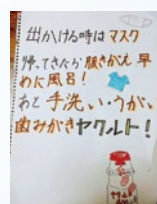 出かける時はマスク
帰ってきたら服きがえ早
めに風呂!
あと手洗い、うがい、
歯みがきヤクルト!